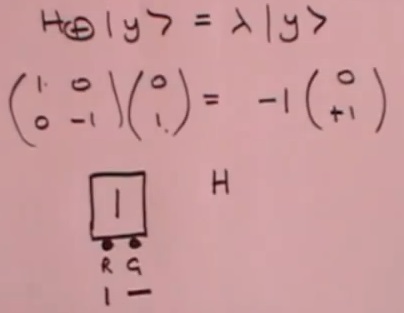 H⊕|y> = λ|y>
(1 0 0 -1)(0 1) = -1(0 +1)
| H
R G
| —